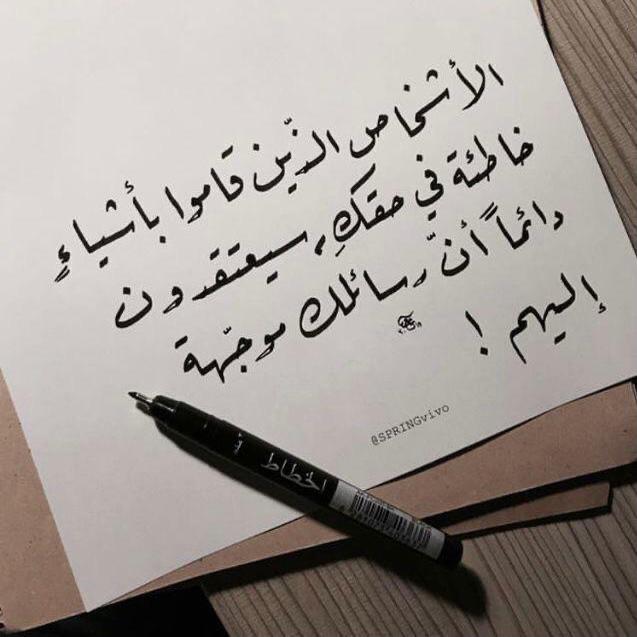 الأشخاص الذّين قاموا بأشياءٍ
خاطئة في حقكِ، سيعتقدون
دائماً أنّ رسائلك موجّهة
إليهم !
@SPRINGvivo
الخطاط